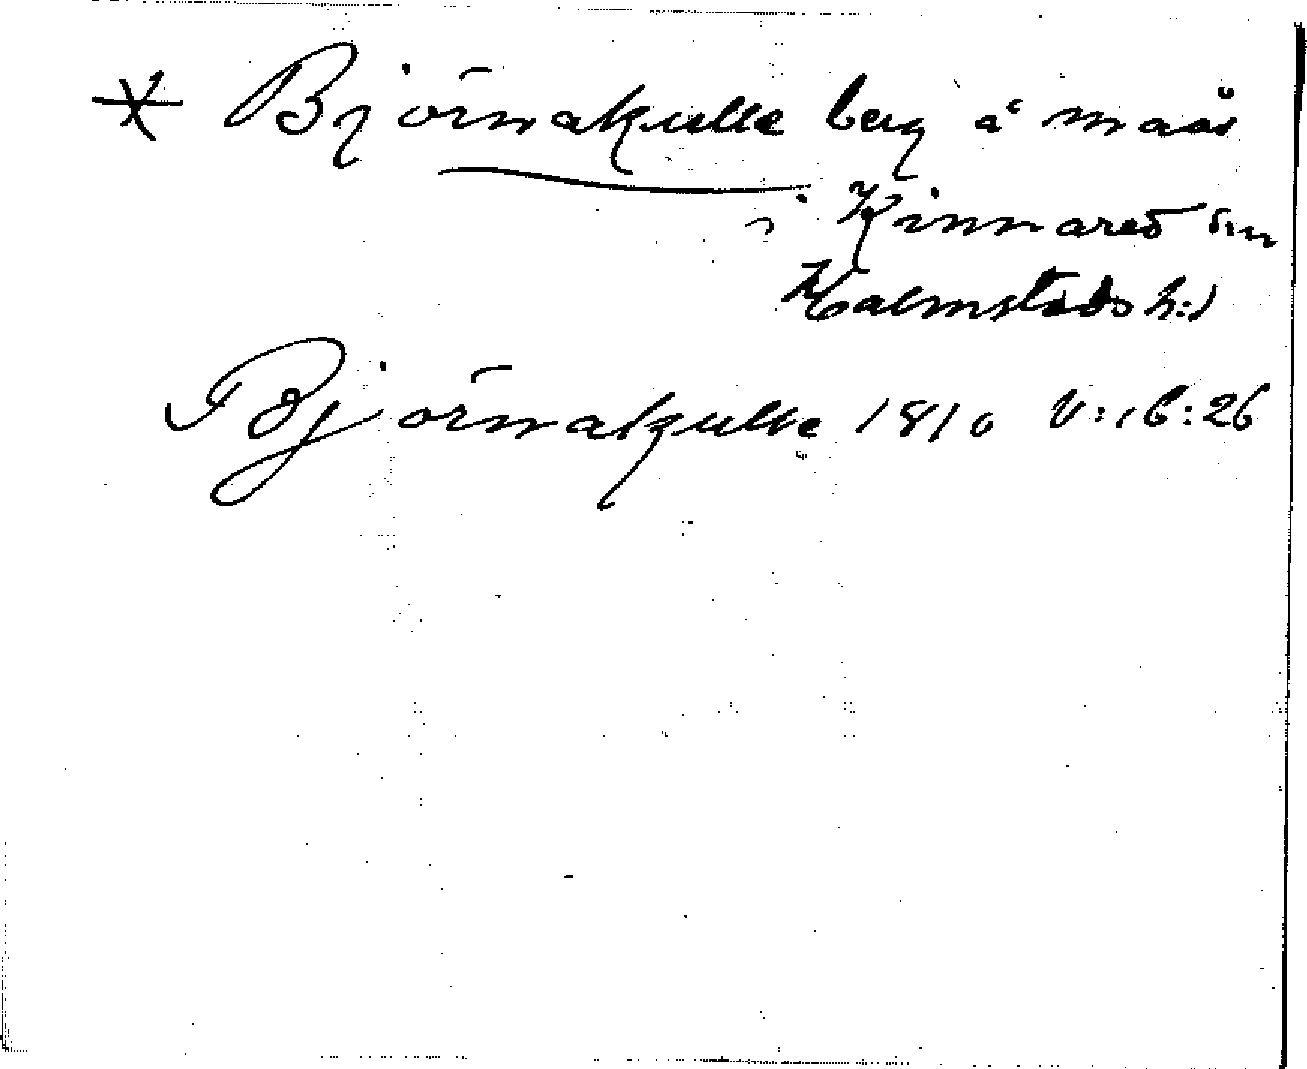 * Björnakulle berg å
i Kinnared sn
Halmstads h:d
Björnakulle 1810 V:16:26